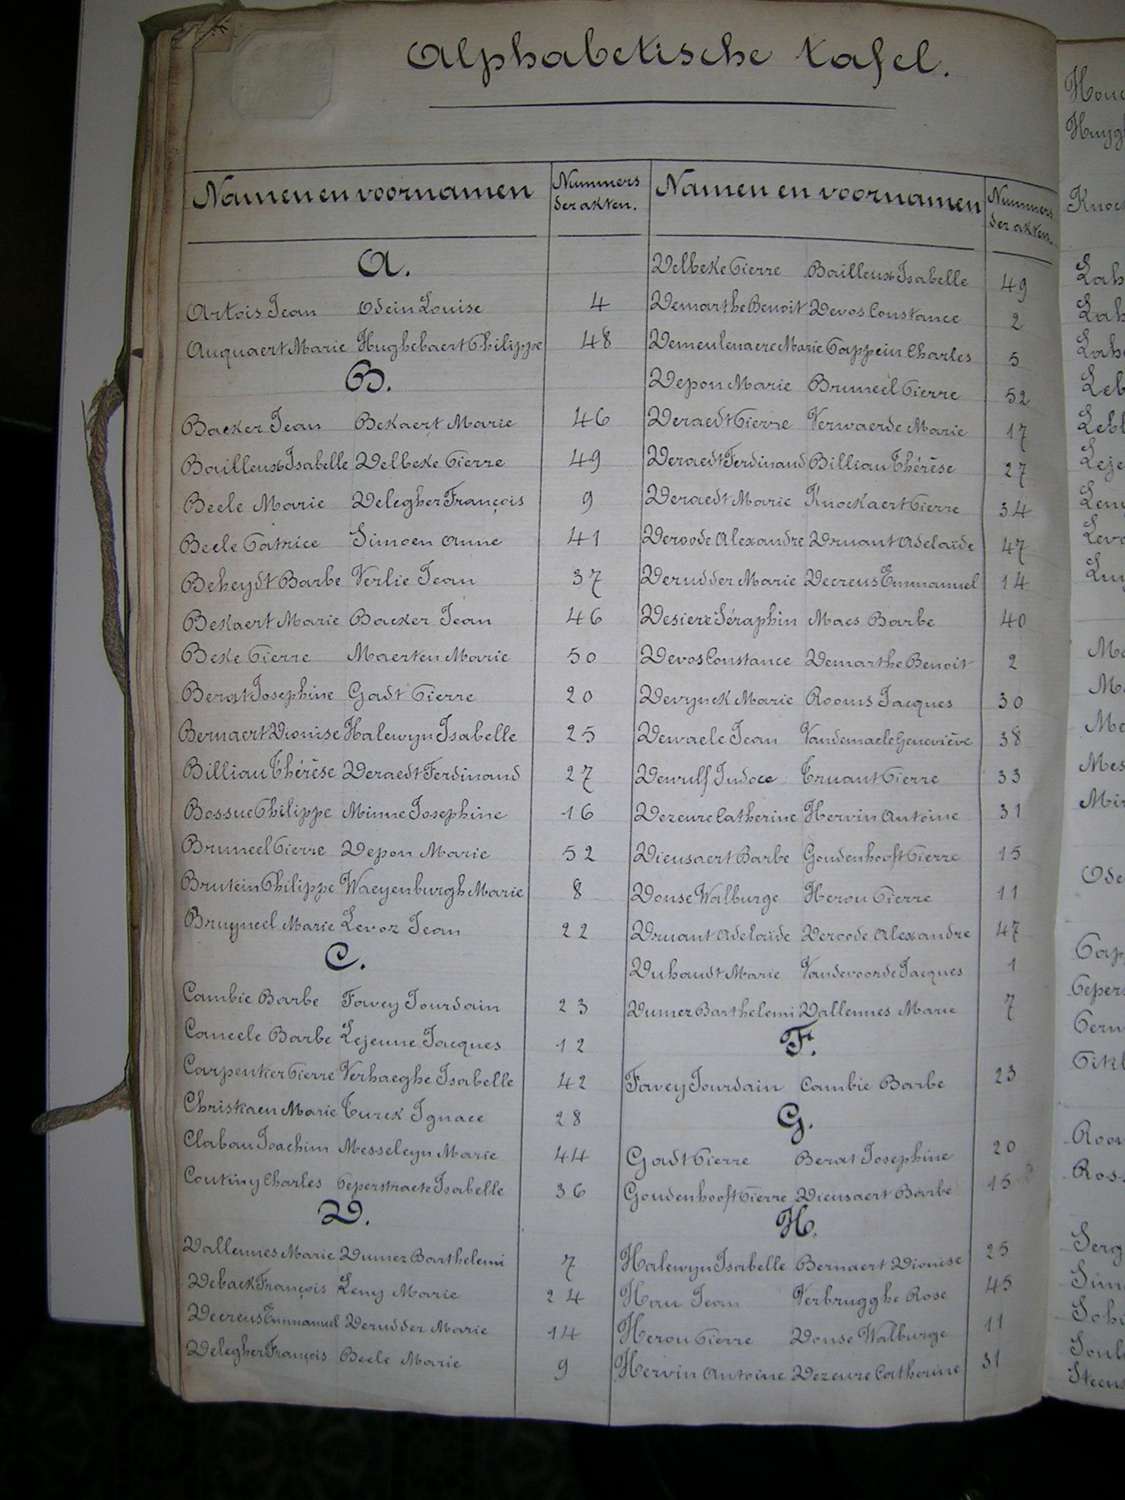 Alphabetische tafel.
Namen en voornamen
Nummers der akten.
A.
Artois Jean Odein Louise 4
Auquaert Marie Hughebaert Philippe 48
B.
Backer Jean Bekaert Marie 46
Bailleux Isabelle Delbeke Pierre 49
Beele Marie Delegher François 9
Beele Patrice Simoen Anne 41
Beheydt Barbe Verlie Jean 37
Bekaert Marie Backer Jean 46
Beke Pierre Maerten Marie 50
Berat Josephine Gadt Pierre 20
Bernaert Dionise Halewyn Isabelle 25
Billiau Thérèse Deraedt Ferdinand 27
Bossue Philippe Minne Josephine 16
Bruneel Pierre Depon Marie 52
Brutein Philippe Waeyenburgh Marie 8
Bruyneel Marie Levoz Jean 22
C.
Cambie Barbe Favey Jourdain 23
Caneele Barbe Lejeune Jacques 12
Carpentier Pierre Verhaeghe Isabelle 42
Christiaen Marie Turck Ignace 28
Clabau Joachim Messeleyn Marie 44
Coutiny Charles Peperstraete Isabelle 36
D.
Dallennes Marie Dumez Barthelemi 7
Deback François Leny Marie 24
Decreus Emmanuel Derudder Marie 14
Delegher François Beele Marie 9
Namen en voornamen
Nummers der akten.
Delbeke Pierre Bailleux Isabelle 49
Demarthe Benoit Devos Constance 2
Demeulenaere Marie Pappein Charles 5
Depon Marie Bruneel Pierre 52
Deraedt Pierre Verwaerde Marie 17
Deraedt Ferdinand Billiau Thérèse 27
Deraedt Marie Knockaert Pierre 34
Deroode Alexandre Druant Adelaïde 47
Derudder Marie Decreus Emmanuel 14
Desiere Séraphin Maes Barbe 40
Devos Constance Demarthe Benoit 2
Devynck Marie Rooms Jacques 30
Dewaele Jean Vandemaele Geneviève 38
Dewulf Judoce Truant Pierre 33
Dezeure Catherine Hervin Antoine 31
Dieusaert Barbe Goudenhooft Pierre 15
Donse Walburge Herou Pierre 11
Druant Adelaïde Deroode Alexandre 47
Duhaudt Marie Vandevoorde Jacques 1
Dumez Barthelemi Dallennes Marie 7
F.
Favey Jourdain Cambie Barbe 23
G.
Gadt Pierre Berat Josephine 20
Goudenhooft Pierre Dieusaert Barbe 15
H.
Halewyn Isabelle Bernaert Dionise 25
Hau Jean Verbrugghe Rose 45
Herou Pierre Donse Walburge 11
Hervin Antoine Dezeure Catherine 31